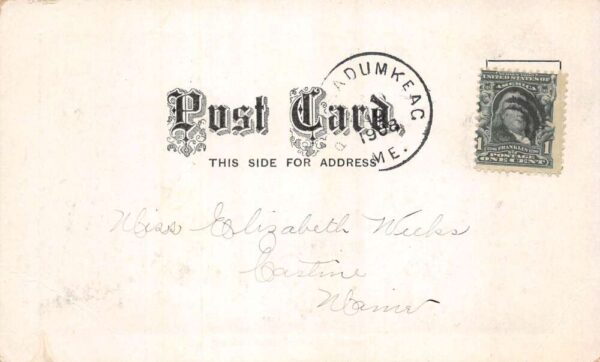 ADUMKEAG
1908
ME.
Post Card.
THIS SIDE FOR ADDRESS
UNITED STATES OF
AMERICA
1 FRANKLIN 1
POSTAGE
ONE CENT
Miss Elizabeth Weeks
Castine
Maine